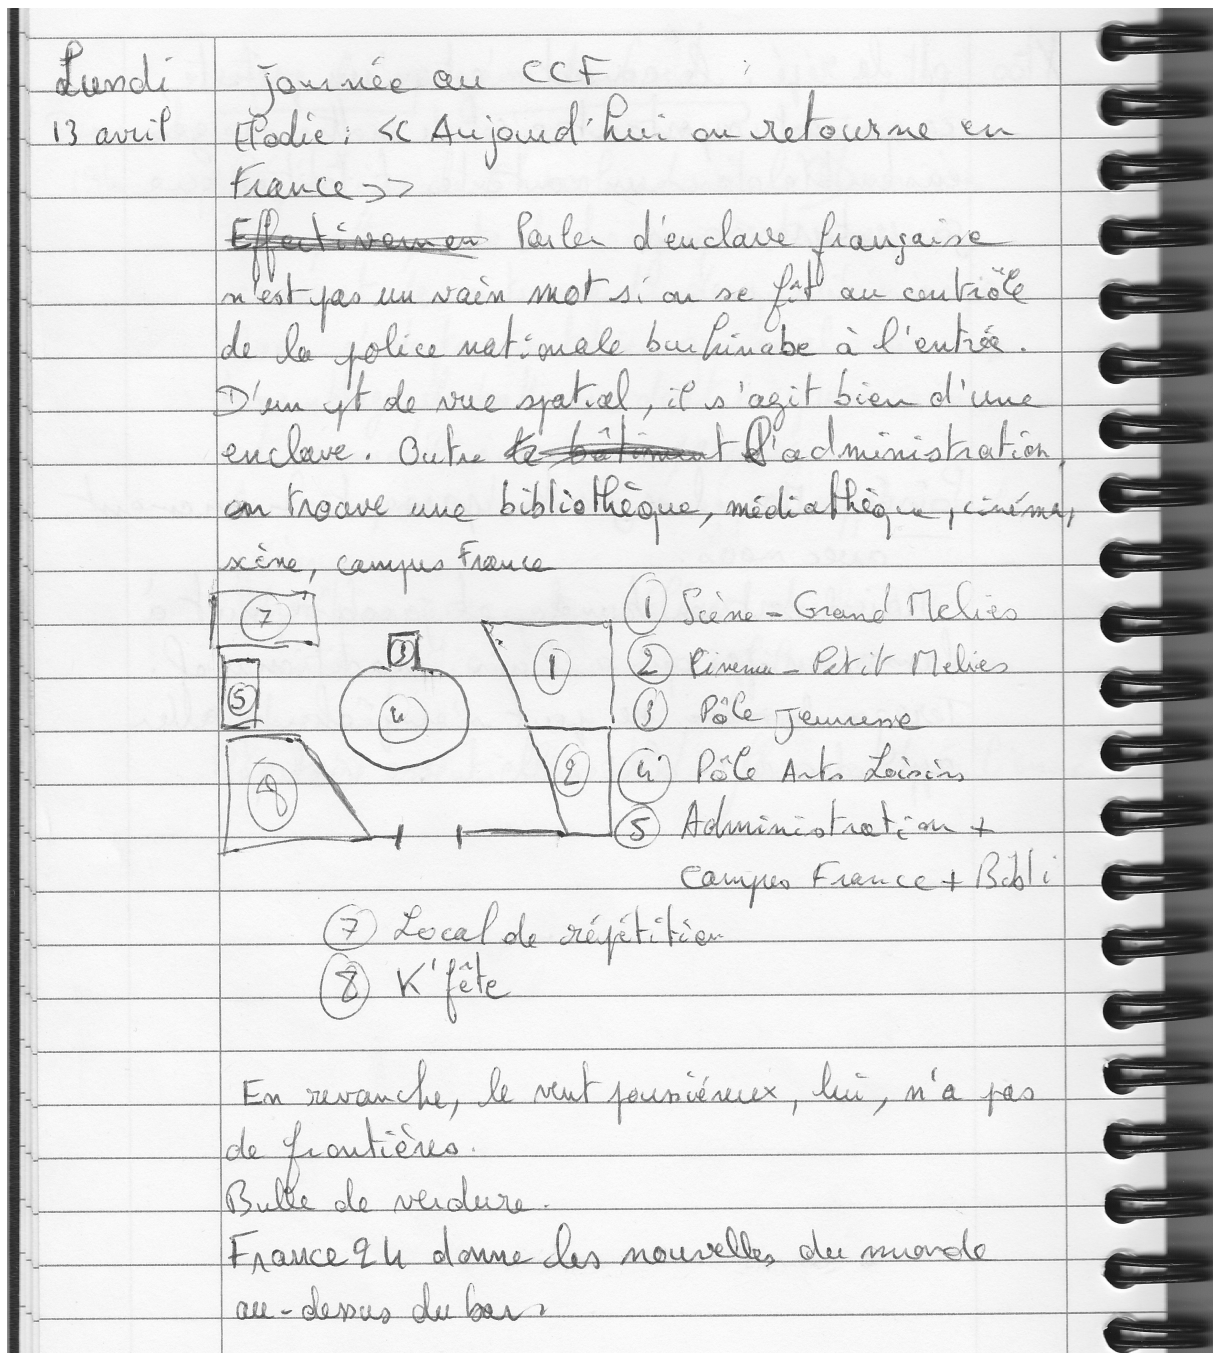 Lundi journée au CCF
13 avril Elodie : << Aujourd'hui on retourne en
France >>
Effectivemen Parler d'enclave française
n'est pas un vain mot si on se fît au contrôle
de la police nationale burkinabe à l'entrée.
D'un pt de vue spatial, il s'agit bien d'une
enclave. Outre le bâtiment l'administration,
on trouve une bibliothèque, médiathèque, cinéma,
scène, campus France
7
3
1
5
4
2
8
1 Scène - Grand Melies
2 Cinema - Petit Melies
3 Pôle Jeunesse
4 Pôle Arts Loisirs
5 Administration +
Campus France + Bibli
7 Local de répétition
8 K'fête
En revanche, le vent poussiéreux, lui, n'a pas
de frontières.
Bulle de verdure.
France 24 donne les nouvelles du monde
au-dessus du bar